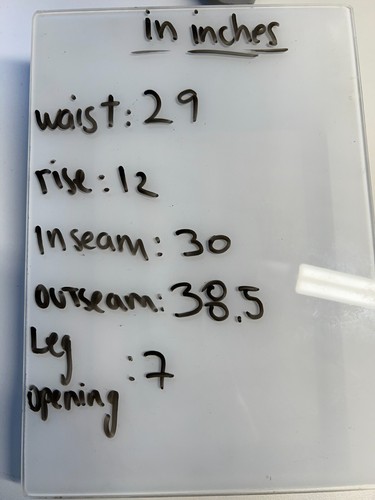 in inches
waist: 29
rise: 12
Inseam: 30
outseam: 38.5
Leg
opening : 7